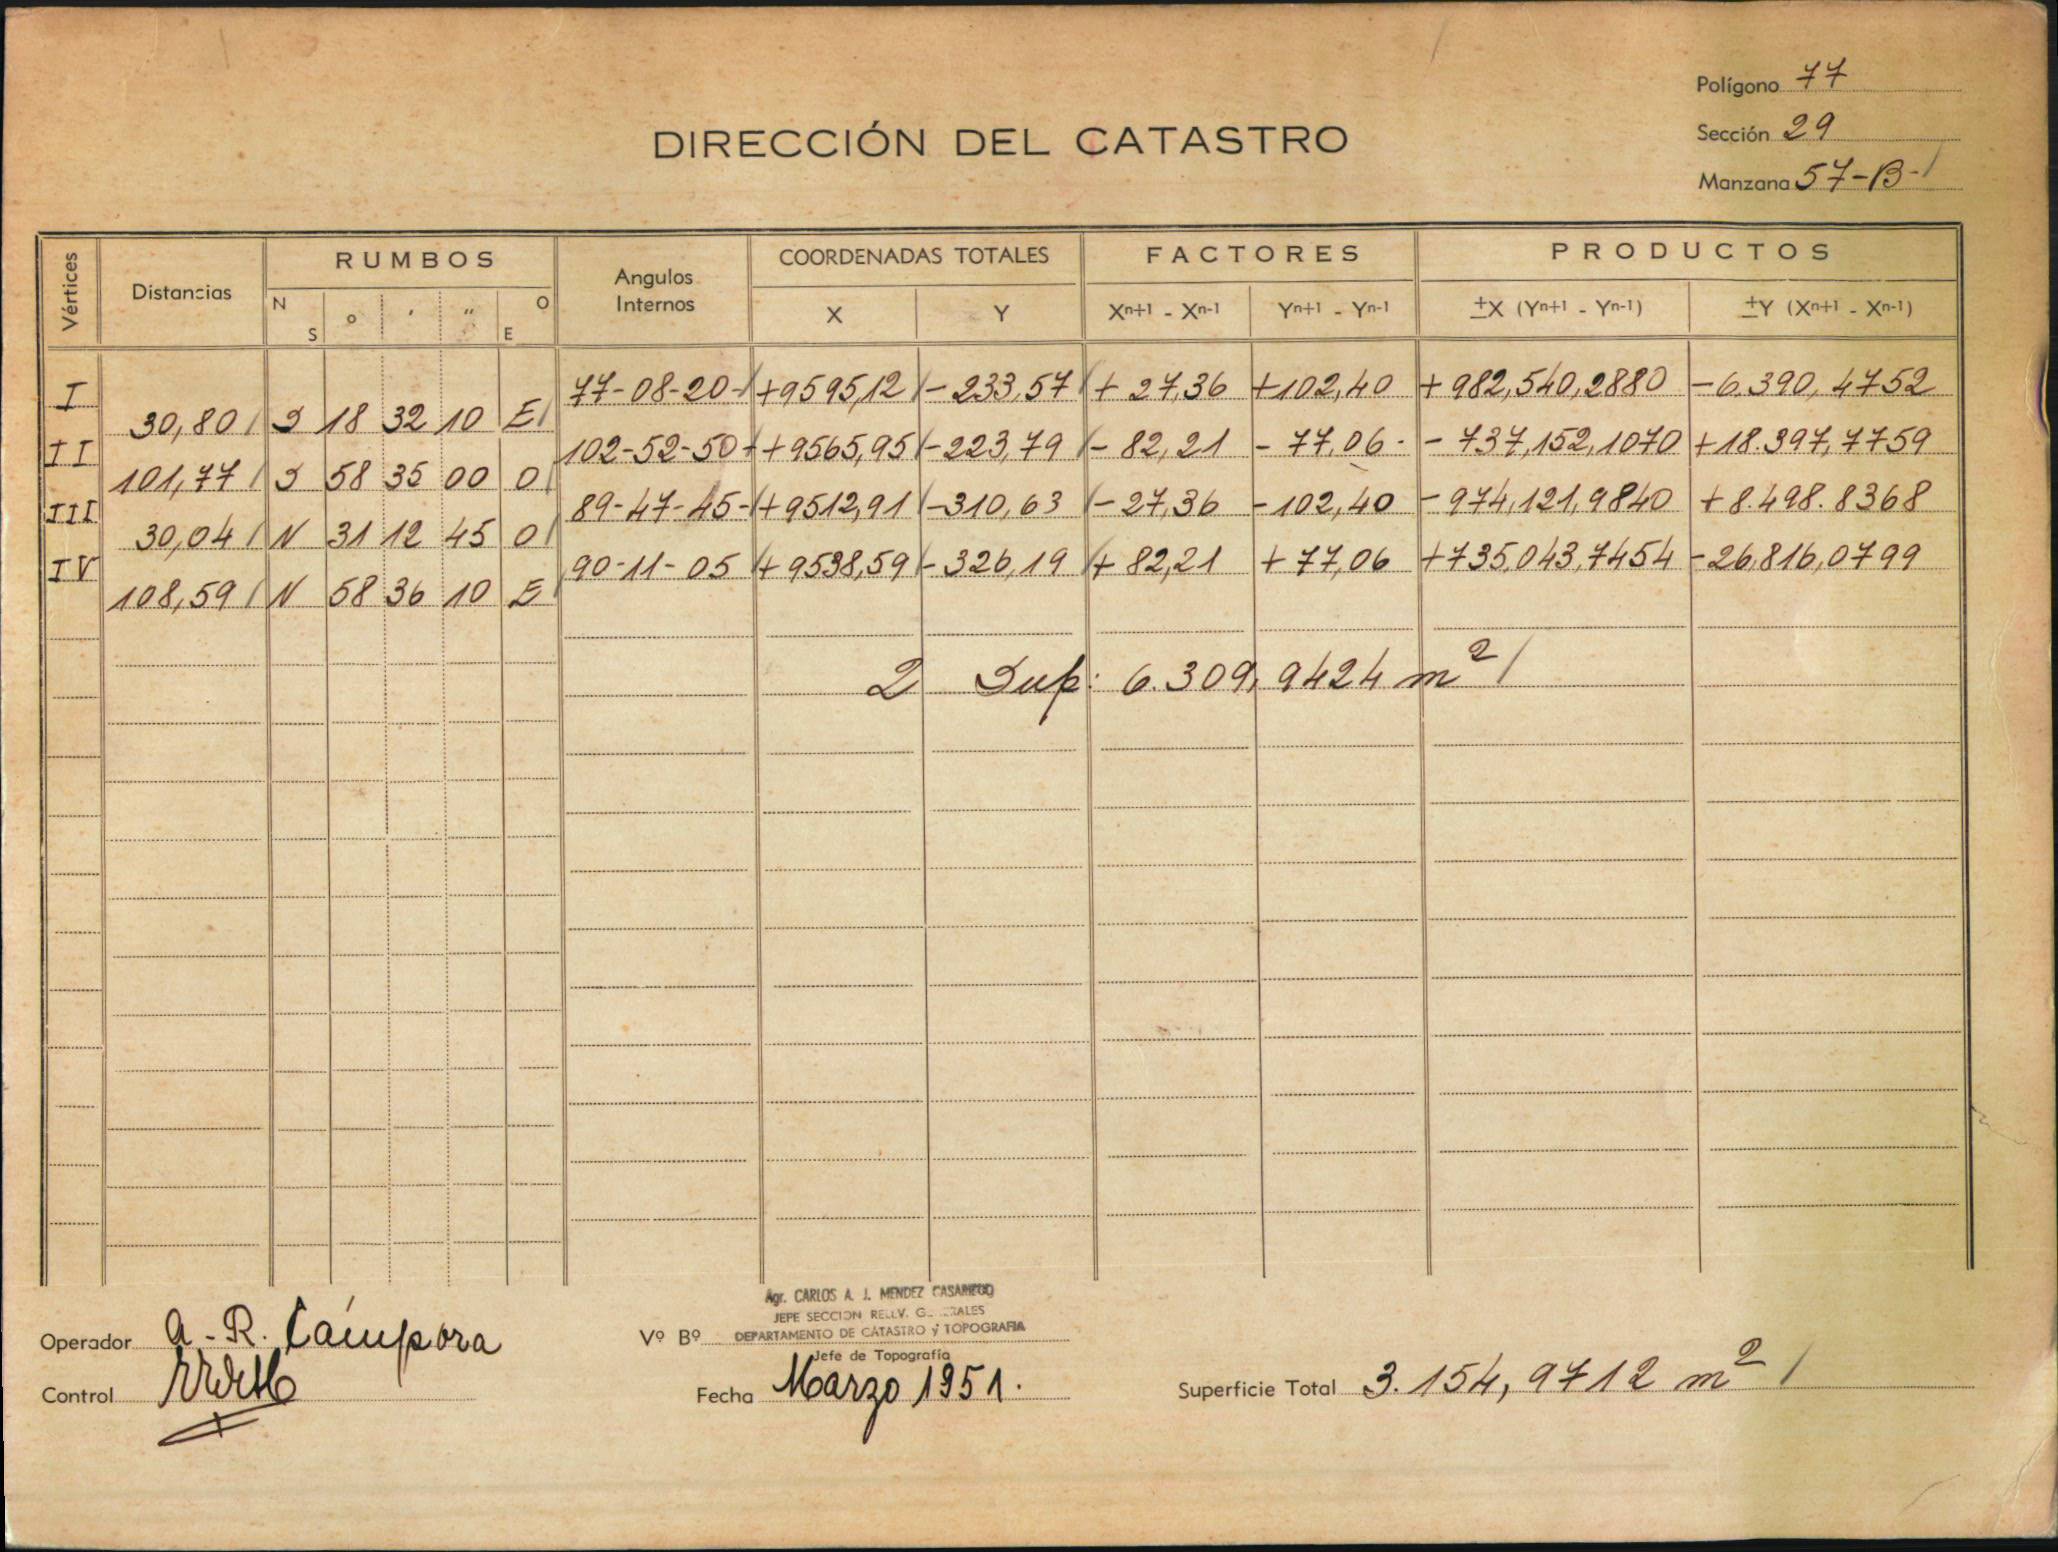 Polígono 77
DIRECCIÓN DEL CATASTRO
Sección 29
Manzana 57-B-
Vértices Distancias RUMBOS Angulos Internos COORDENADAS TOTALES FACTORES PRODUCTOS
N S o ' " O E X Y Xn+1 - Xn-1 Yn+1 - Yn-1 ±X (Yn+1 - Yn-1) ±Y (Xn+1 - Xn-1)
I 77-08-20- +9595,12 -233,57 + 27,36 +102,40 +982,540,2880 -6.390,4752
30,80 S 18 32 10 E
II 102-52-50- +9565,95 -223,79 - 82,21 - 77,06- - 737,152,1070 +18.397,7759
101,77 S 58 35 00 O
III 89-47-45- +9512,91 -310,63 -27,36 -102,40 -974,121,9840 +8.498.8368
30,04 N 31 12 45 O
IV 90-11-05 +9538,59 -326,19 + 82,21 + 77,06 +735,043,7454 -26,816,0799
108,59 N 58 36 10 E
2 Sup: 6.309,9424 m²
Agr. CARLOS A. J. MENDEZ CASARIEGO
JEFE SECCION RELEV. GENERALES
DEPARTAMENTO DE CATASTRO y TOPOGRAFIA
Operador A. R. Cámpora Vº Bº
Jefe de Topografía
Control Fecha Marzo 1951. Superficie Total 3.154,9712 m²